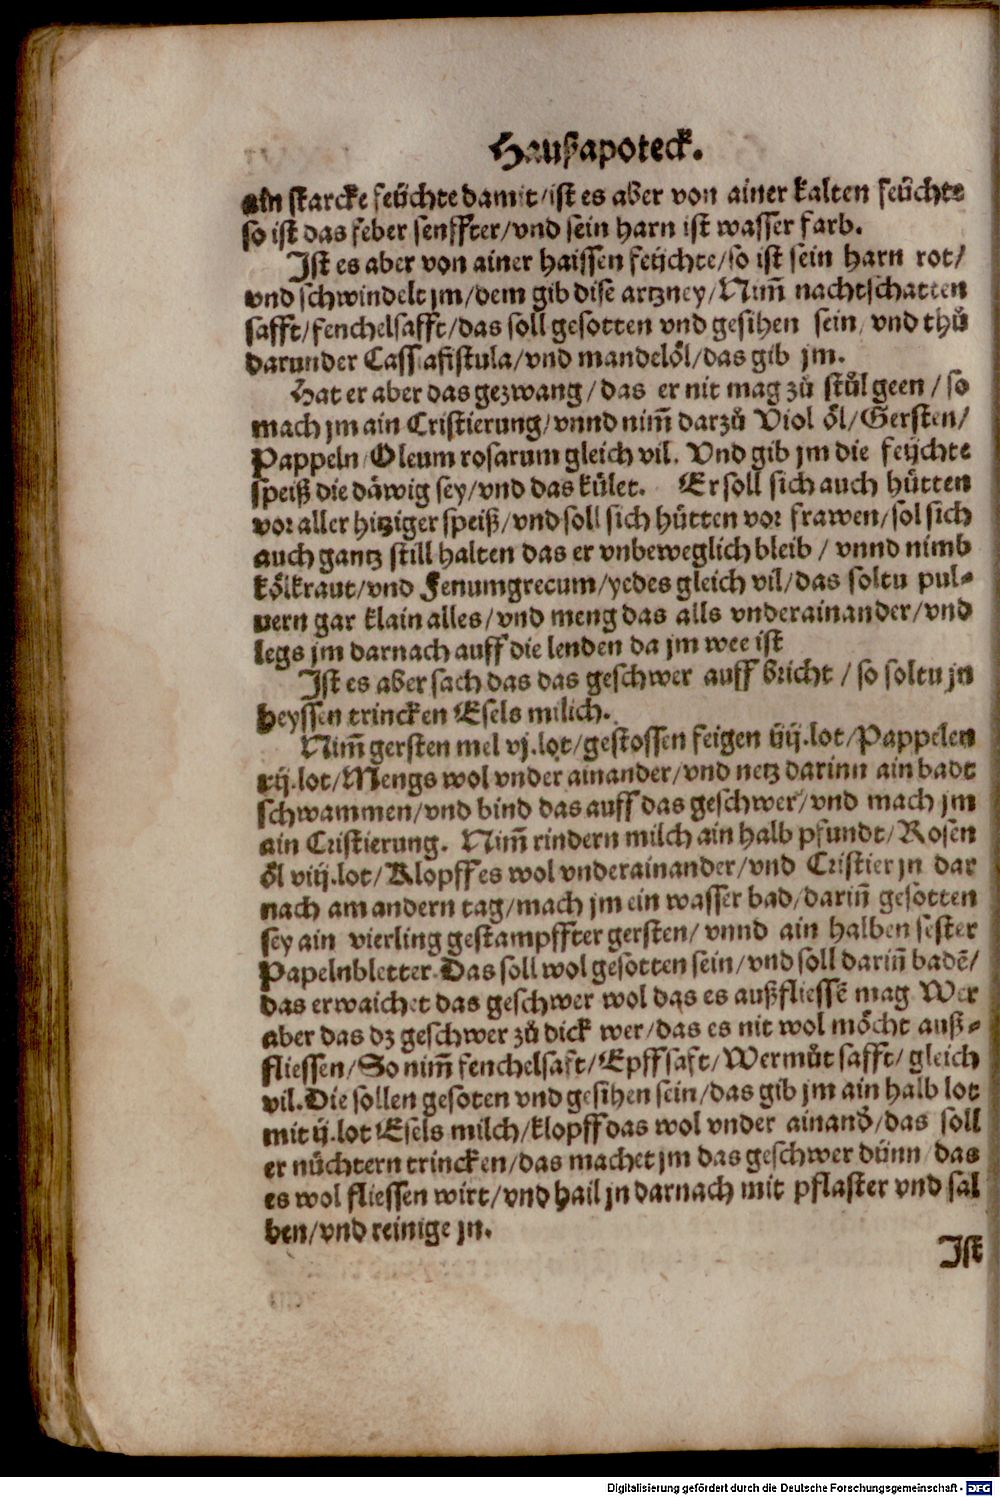 Haußapoteck.
ain starcke feüchte damit/ist es aber von ainer kalten feüchte
so ist das feber senffter/vnd sein harn ist wasser farb.
Ist es aber von ainer haissen feüchte/so ist sein harn rot/
vnd schwindelt jm/dem gib dise artzney/Nim̃ nachtschatten
safft/fenchelsafft/das soll gesotten vnd gesihen sein/vnd thů
darunder Cassiafistula/vnd mandelöl/das gib jm.
Hat er aber das gezwang/das er nit mag zů stůl geen/so
mach jm ain Cristierung/vnnd nim̃ darzů Viol öl/Gersten/
Pappeln/Oleum rosarum gleich vil. Vnd gib jm die feüchte
speiß die däwig sey/vnd das kület. Er soll sich auch hütten
vor aller hitziger speiß/vnd soll sich hütten vor frawen/sol sich
auch gantz still halten das er vnbeweglich bleib/vnnd nimb
kölkraut/vnd Fenumgrecum/yedes gleich vil/das soltu pul-
vern gar klain alles/vnd meng das alls vnderainander/vnd
legs jm darnach auff die lenden da jm wee ist
Ist es aber sach das das geschwer auff bricht/so soltu jn
heyssen trincken Esels milich.
Nim̃ gersten mel vj.lot/gestossen feigen iiij.lot/Pappelen
xij.lot/Mengs wol vnder ainander/vnd netz darinn ain badt
schwammen/vnd bind das auff das geschwer/vnd mach jm
ain Cristierung. Nim̃ rindern milch ain halb pfundt/Rosen
öl viij.lot/Klopff es wol vnderainander/vnd Cristier jn dar
nach am andern tag/mach jm ein wasser bad/darin̄ gesotten
sey ain vierling gestampffter gersten/vnnd ain halben sester
Papelnbletter. Das soll wol gesotten sein/vnd soll darin̄ badē/
das erwaichet das geschwer wol das es außfliessē mag Wer
aber das dz geschwer zů dick wer/das es nit wol möcht auß-
fliessen/So nim̃ fenchelsaft/Epffsaft/Wermůt safft/gleich
vil. Die sollen gesoten vnd gesihen sein/das gib jm ain halb lot
mit ij.lot Esels milch/klopff das wol vnder ainand/das soll
er nüchtern trincken/das machet jm das geschwer dünn/das
es wol fliessen wirt/vnd hail jn darnach mit pflaster vnd sal
ben/vnd reinige jn.
Ist
Digitalisierung gefördert durch die Deutsche Forschungsgemeinschaft - DFG